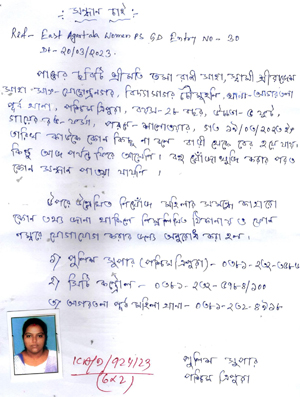 সন্ধান চাই
Ref- East Agartala Women PS GD Entry No- 30
dt- 20/03/2023.
পাশের ছবিটি শ্রীমতি রানী সাহা, স্বামী শ্রী
সাহা, থানা- আগরতলা
পূর্ব থানা, পশ্চিম ত্রিপুরা, বয়স- ২৮ বছর, উচ্চতা- ৫ ফুট,
গায়ের রং- পরনে-
তারিখ কাউকে কোন কিছু না বলে বাড়ী থেকে বের হয়ে যায়।
কিন্তু আজ পর্যন্ত ফিরে আসেনি। বহু খোঁজাখুঁজি করার পরও
কোন সন্ধান পাওয়া যায়নি।
উপরে উল্লেখিত নিখোঁজ মহিলার সম্বন্ধে কাহারো
কোন তথ্য জানা থাকিলে নিম্নলিখিত ঠিকানায় ও ফোন
নম্বরে যোগাযোগ করার জন্য অনুরোধ করা হল।
১) পুলিশ সুপার (পশ্চিম ত্রিপুরা)- ০৩৮১-২৩২-
২) সিটি কন্ট্রোল- ০৩৮১-২৩২-৫৭৮৪/১০০
৩) আগরতলা পূর্ব মহিলা থানা- ০৩৮১-২৩২-
ICA/D/924/23
(6x2)
পুলিশ সুপার
পশ্চিম ত্রিপুরা